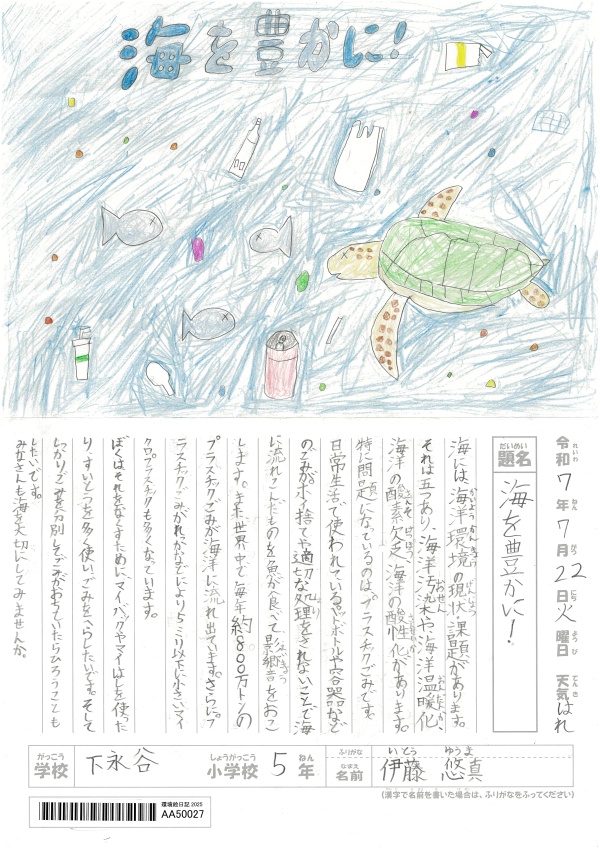 海を豊かに!
令和7年7月22日火曜日 天気はれ
れいわ ねん がつ にち ようび てんき
題名 海を豊かに!
だいめい
海には、海洋環境の現状課題があります。
それは五つあり、海洋汚染や海洋温暖化、
海洋の酸素欠乏、海洋の酸性化があります。
特に問題になっているのは、プラスチックごみです。
日常生活で使われているペットボトルや容器など
のごみがポイ捨てや適切な処理をされないことで海
に流れこんだものを魚が食べて影響をおこ
します。また世界中で毎年約800万トンの
プラスチックごみが海洋に流れ出ています。さらにプ
ラスチックごみがれっかなどにより5ミリ以下に小さいマイ
クロプラスチックも多くなっています。
ぼくはそれをなくすために、マイバックやマイはしを使った
り、すいとうを多く使い、ごみをへらしたいです。そして
しっかりごみを分別し、そとごみがおちていたらひろうことも
したいです。
みなさんも海を大切にしてみませんか。
がっこう しょうがっこう ねん ふりがな いとう ゆうま
学校 下永谷 小学校 5年 名前 伊藤 悠真
なまえ
(漢字で名前を書いた場合は、ふりがなをふってください)
環境絵日記 2025
AA50027